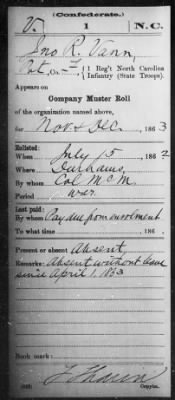 (Confederate.)
V. 1 N.C.
Jno R. Vann,
Pvt, Co. F, 1 Reg't North Carolina
Infantry (State Troops).
Appears on
Company Muster Roll
of the organization named above,
for Nov & Dec, 1863
Enlisted:
When July 15, 1862
Where Durhams,
By whom Col McM.
Period war
Last paid:
By whom Pay due from enrolment
To what time , 186
Present or absent Absent
Remarks: Absent without leave
since April 1, 1863
Book mark:
Copyist.